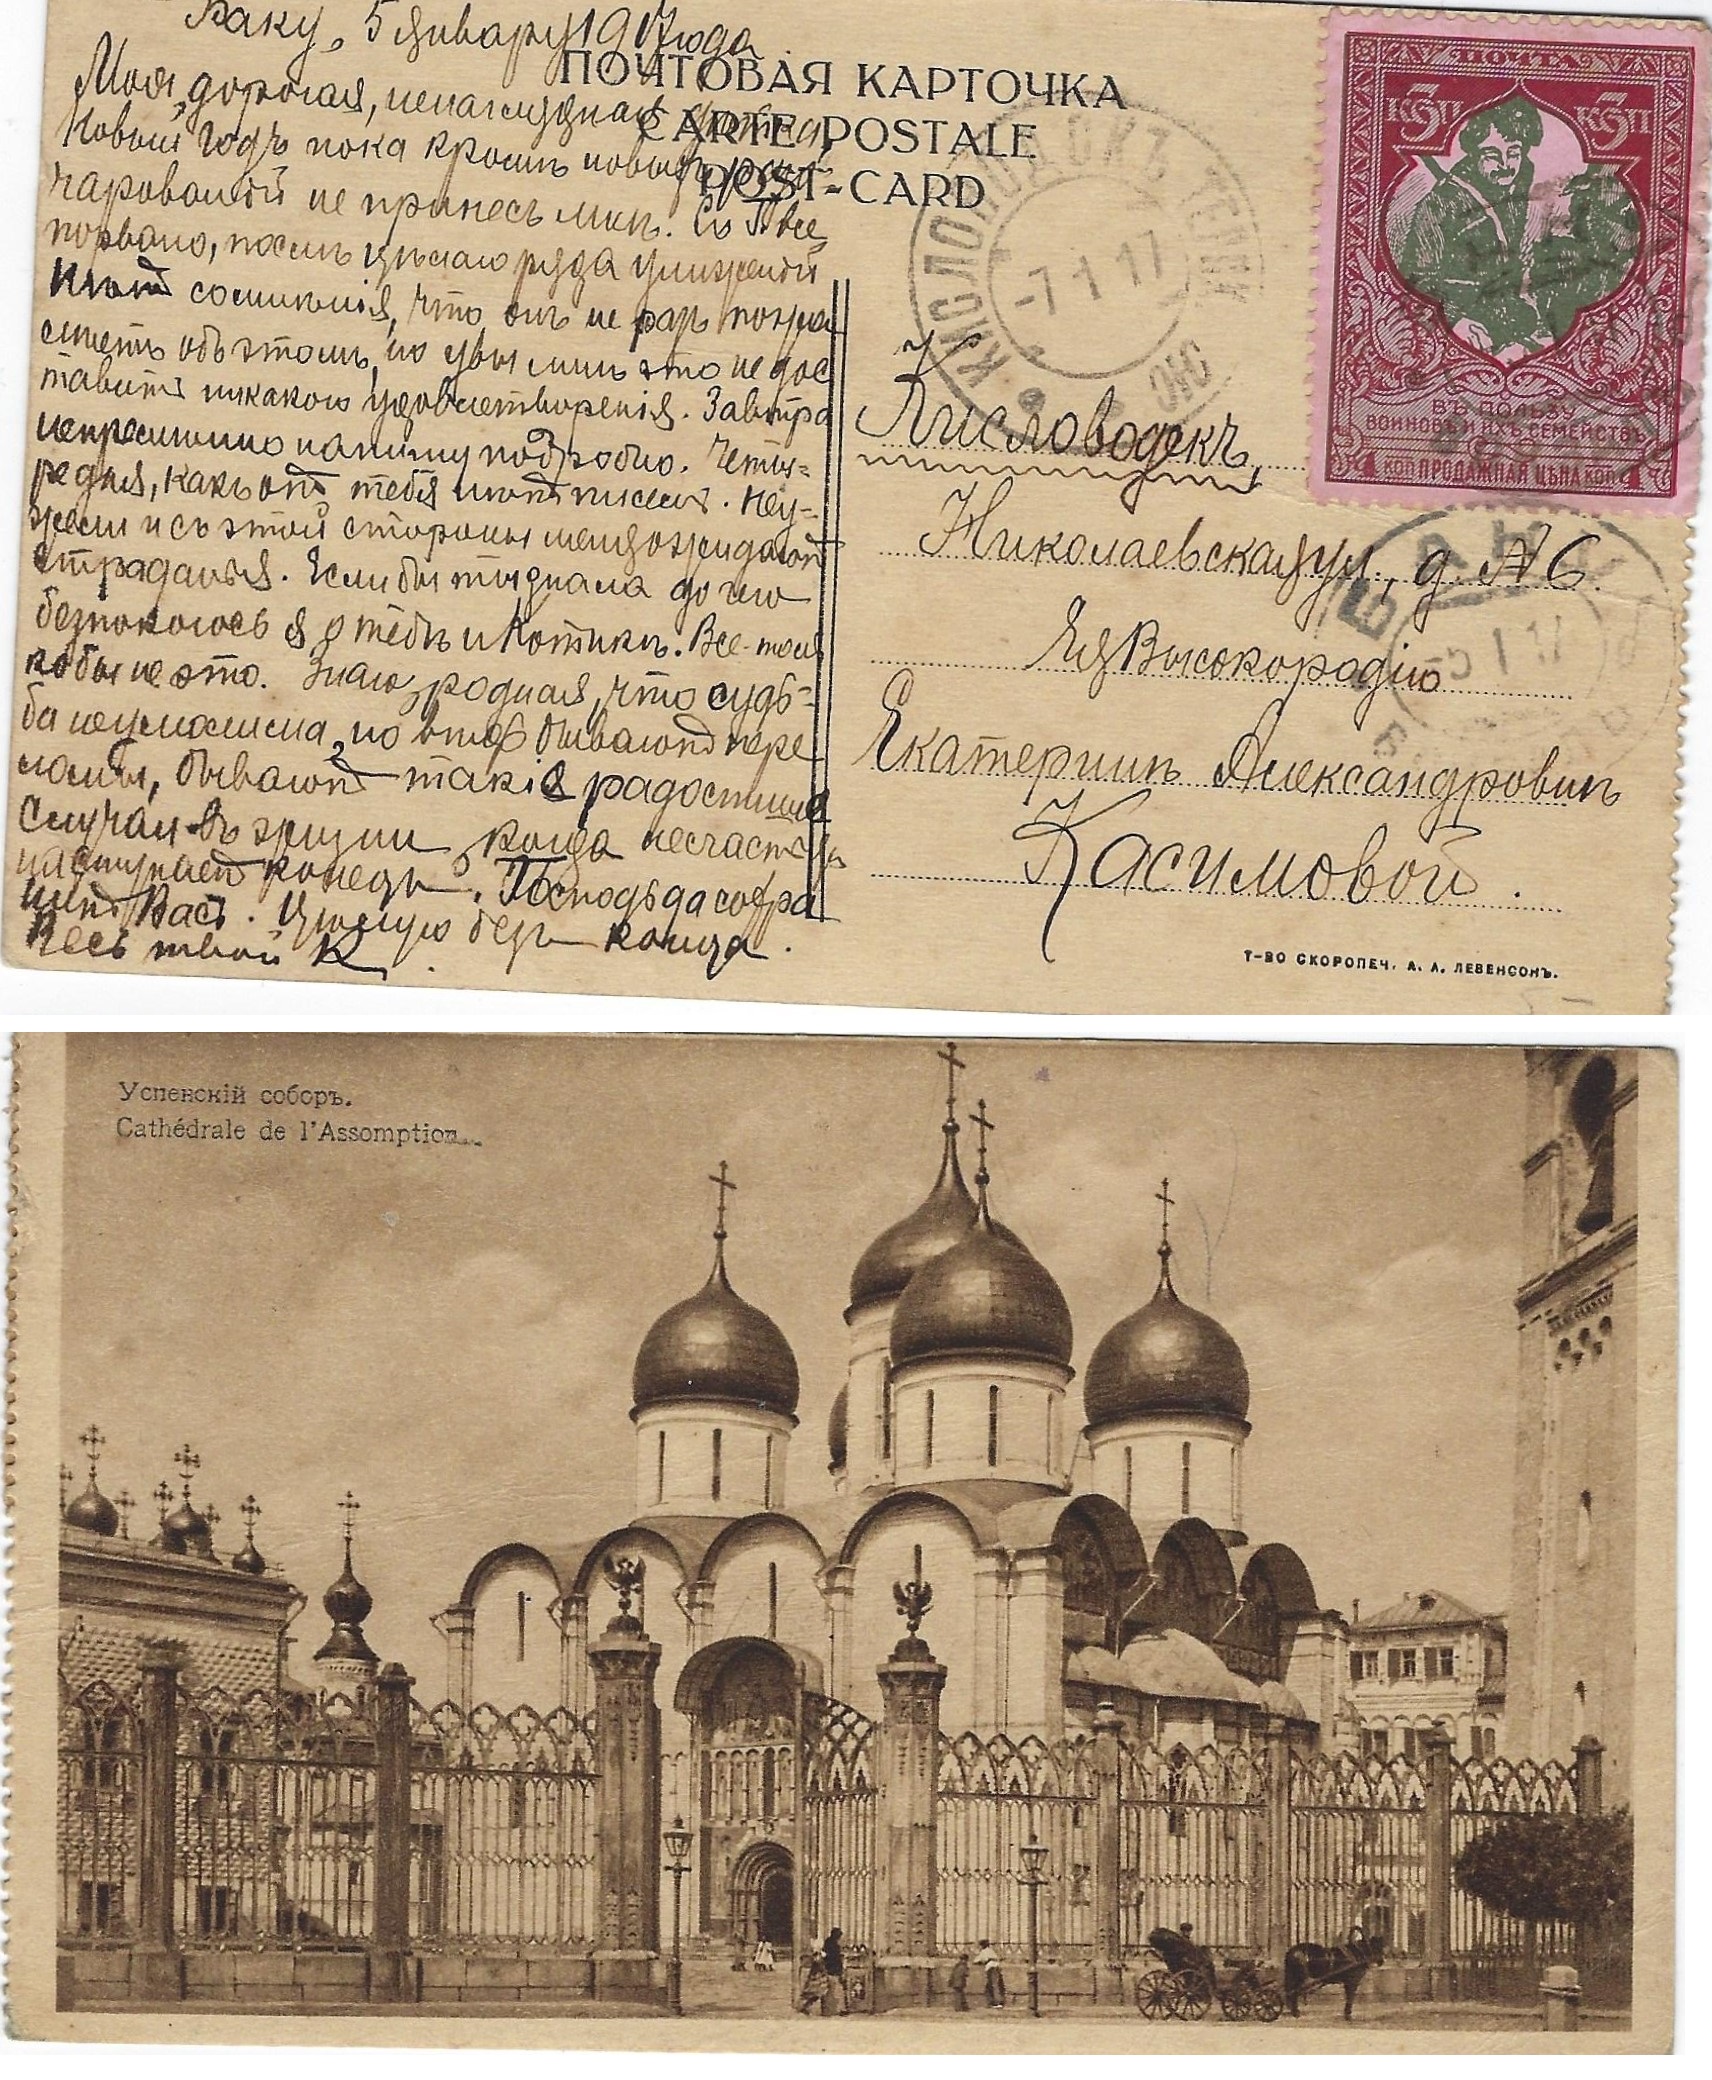 Баку, 5 январу 1917 года
Моя дорогая, ненаглядная Катя,
Новый годъ пока кромѣ новыхъ разо-
чарованій не принесъ мнѣ. Съ П все
порвано, послѣ цѣлаго ряда униженій
Нѣтъ сомнѣнія, что онъ не разъ пожа
лѣетъ объ этомъ, но увы мнѣ это не дос
тавитъ никакого удовлетворенія. Завтра
непремѣнно напишу подробно. Четы-
ре дня, какъ отъ тебя нѣтъ писемъ. Неу-
жели и съ этой стороны меня ожидаютъ
страданья. Если бы ты знала до чего
безпокоюсь я о тебѣ и Котикѣ. Все толь
ко бы не это. Знаю, родная, что судь-
ба неумолима, но вѣдь бываютъ пере
ломы, бываютъ такіе радостные
случаи въ жизни когда несчастью
наступаетъ конецъ. Господь да сохра
нитъ Васъ. Цѣлую безъ конца.
Весь твой К.
ПОЧТОВАЯ КАРТОЧКА
CARTE POSTALE
POST-CARD
КИСЛОВОДСКЪ ТЕРСК
-7 1 17
ПОЧТА
3 КОП 3 КОП
ВЪ ПОЛЬЗУ
ВОИНОВЪ И ИХЪ СЕМЕЙСТВЪ
4 КОП ПРОДАЖНАЯ ЦѢНА КОП 4
БАКУ
-5 1 17
Кисловодскъ,
Николаевская ул., д. № 6.
Ея Высокородію
Екатеринѣ Александровнѣ
Касимовой.
Т-ВО СКОРОПЕЧ. А. А. ЛЕВЕНСОНЪ.
Успенскій соборъ.
Cathédrale de l'Assomption